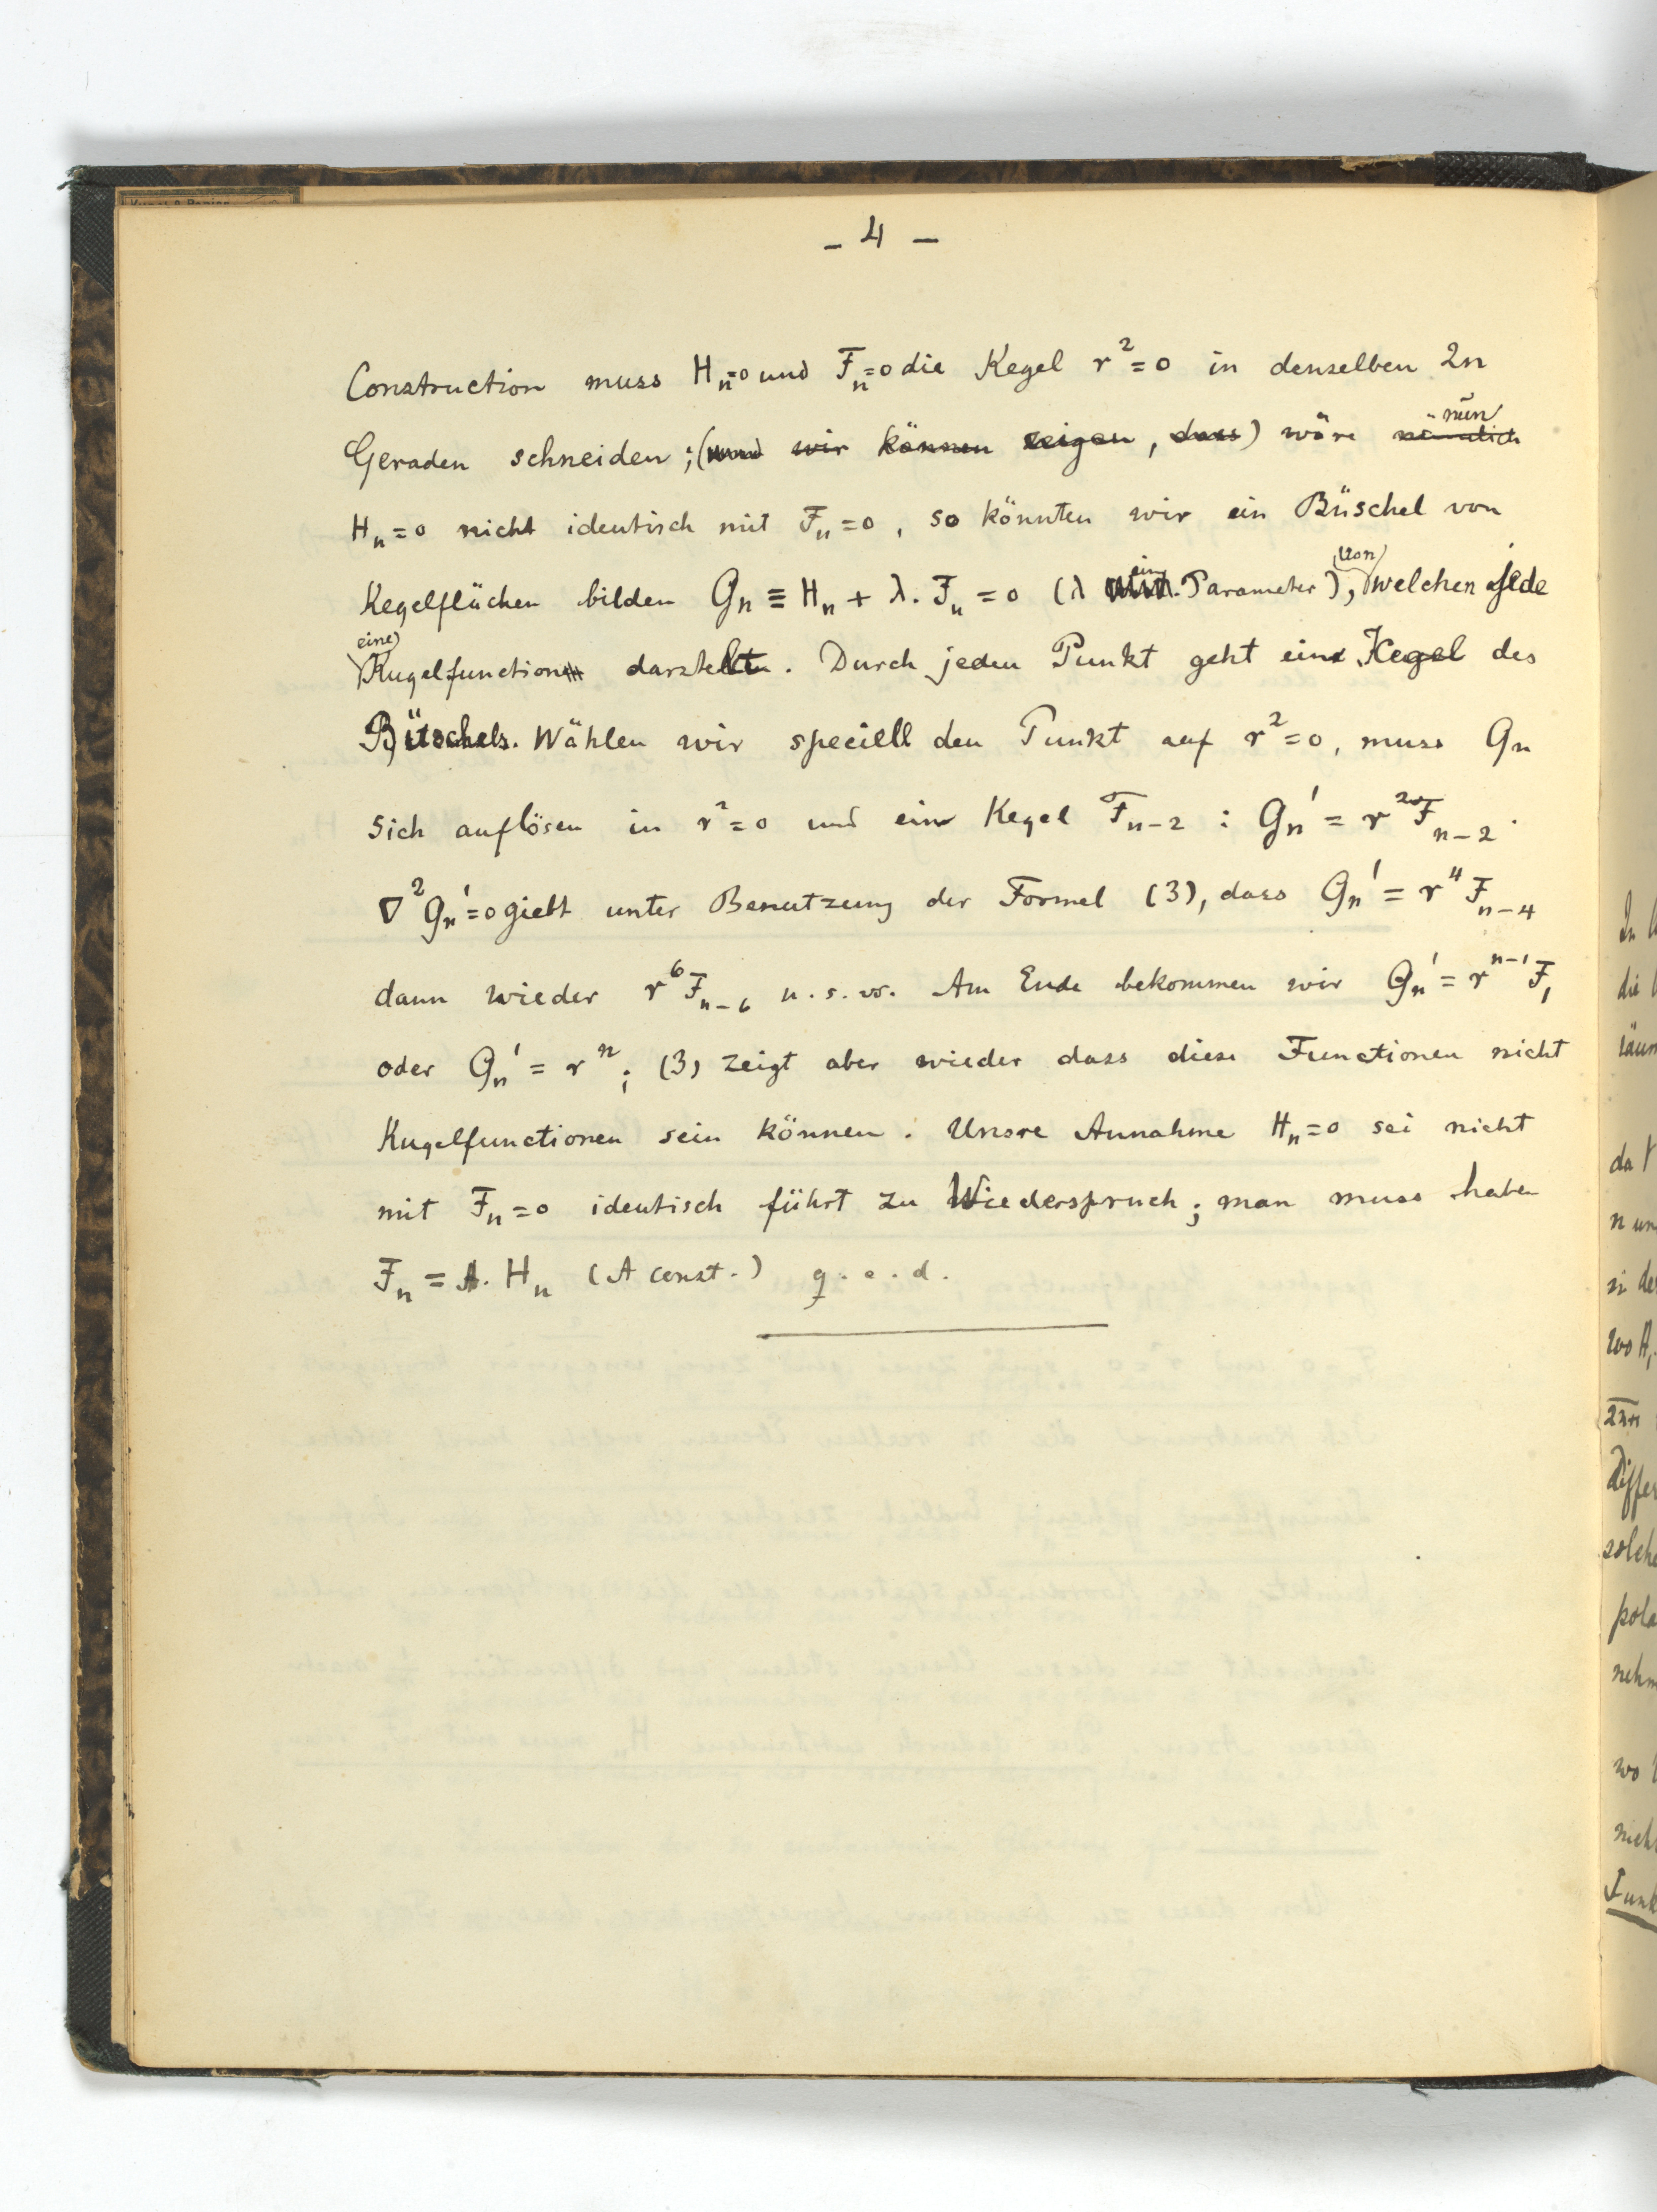 – 4 –
Construction muss Hₙ=0 und Fₙ=0 die Kegel r²=0 in denselben 2n
Geraden schneiden; (und wir können zeigen, dass) wäre nämlich nun
Hₙ=0 nicht identisch mit Fₙ=0, so könnten wir ein Büschel von
Kegelflächen bilden Gₙ ≡ Hₙ + λ. Fₙ = 0 (λ ein Parameter), von welchen jede
eine Kugelfunction darstellt. Durch jeden Punkt geht ein Kegel des
Büschels. Wählen wir speciell den Punkt auf r²=0, muss Gₙ
sich auflösen in r²=0 und ein Kegel Fₙ₋₂ : Gₙ' = r²Fₙ₋₂.
∇²Gₙ'=0 giebt unter Benutzung der Formel (3), dass Gₙ' = r⁴Fₙ₋₄
dann wieder r⁶Fₙ₋₆ u.s.w. Am Ende bekommen wir Gₙ' = rⁿ⁻¹F₁
oder Gₙ' = rⁿ; (3) zeigt aber wieder dass diese Functionen nicht
Kugelfunctionen sein können. Unsre Annahme Hₙ=0 sei nicht
mit Fₙ=0 identisch führt zu Wiederspruch; man muss haben
Fₙ = A. Hₙ (A const.) q.e.d.